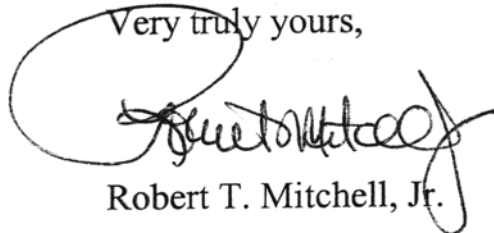 Very truly yours,
Robert T. Mitchell, Jr.
Robert T. Mitchell, Jr.